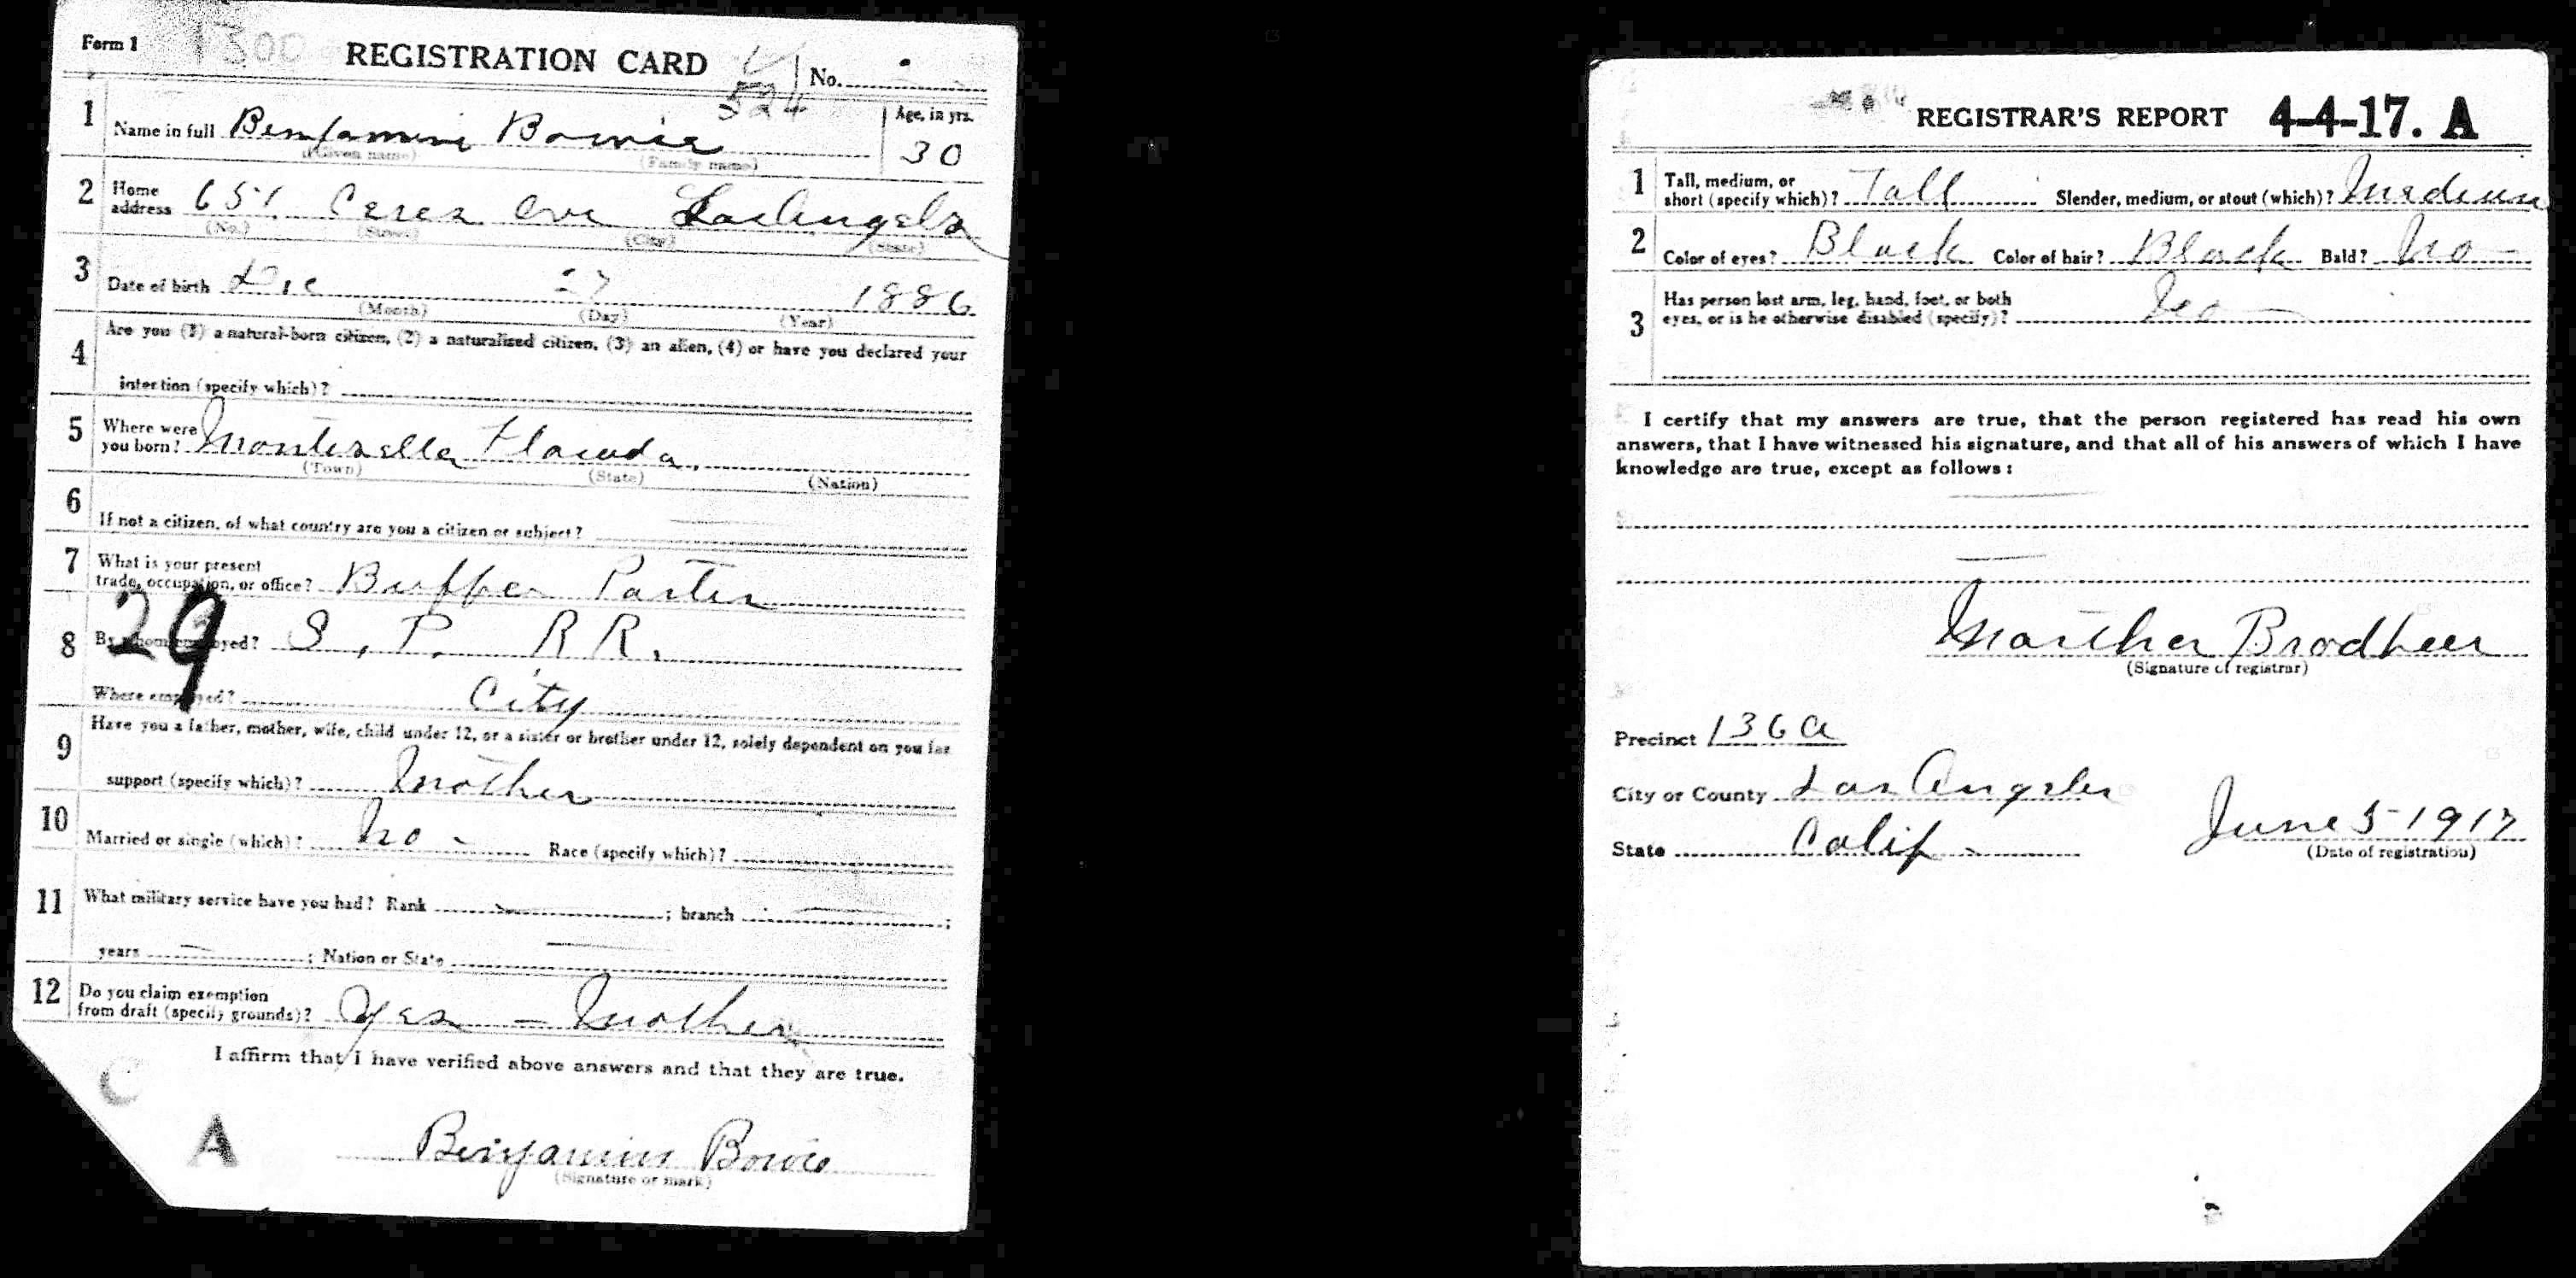 Form 1 1300 REGISTRATION CARD 524 No.
1 Name in full Benjamine Bowie Age, in yrs.
(Given name) (Family name) 30
2 Home address 651 Ceres Ave Los Angels
(No.) (Street) (City) (State)
3 Date of birth Dec 27 1886
(Month) (Day) (Year)
4 Are you (1) a natural-born citizen, (2) a naturalized citizen, (3) an alien, (4) or have you declared your
intention (specify which)?
5 Where were you born? Montesella Flaruda.
(Town) (State) (Nation)
6 If not a citizen, of what country are you a citizen or subject?
7 What is your present trade, occupation, or office? Buffer Porter
29
8 By whom employed? S. P. RR.
Where employed? City
9 Have you a father, mother, wife, child under 12, or a sister or brother under 12, solely dependent on you for
support (specify which)? Mother
10 Married or single (which)? No - Race (specify which)?
11 What military service have you had? Rank ; branch ;
years ; Nation or State
12 Do you claim exemption from draft (specify grounds)? Yes - Mother
I affirm that I have verified above answers and that they are true.
C
A
Benjamin Bowie
(Signature or mark)
REGISTRAR'S REPORT 4-4-17. A
1 Tall, medium, or short (specify which)? Tall Slender, medium, or stout (which)? Medium
2 Color of eyes? Black Color of hair? Black Bald? No
3 Has person lost arm, leg, hand, foot, or both eyes, or is he otherwise disabled (specify)? No
I certify that my answers are true, that the person registered has read his own
answers, that I have witnessed his signature, and that all of his answers of which I have
knowledge are true, except as follows:
Brodbeer
(Signature of registrar)
Precinct 136 a
City or County Los Angeles
State Calif June 5 1917
(Date of registration)